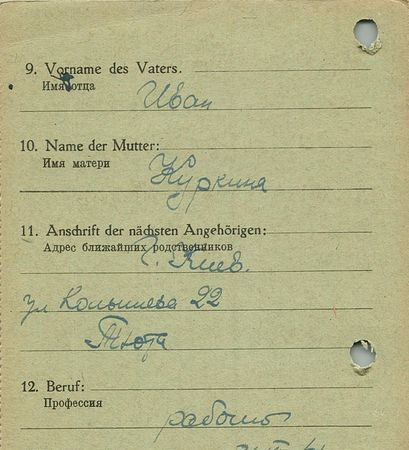 9. Vorname des Vaters.
Имя отца
Иван
10. Name der Mutter:
Имя матери
Куркина
11. Anschrift der nächsten Angehörigen:
Адрес ближайших родственников
г. Киев.
ул 22
12. Beruf:
Профессия